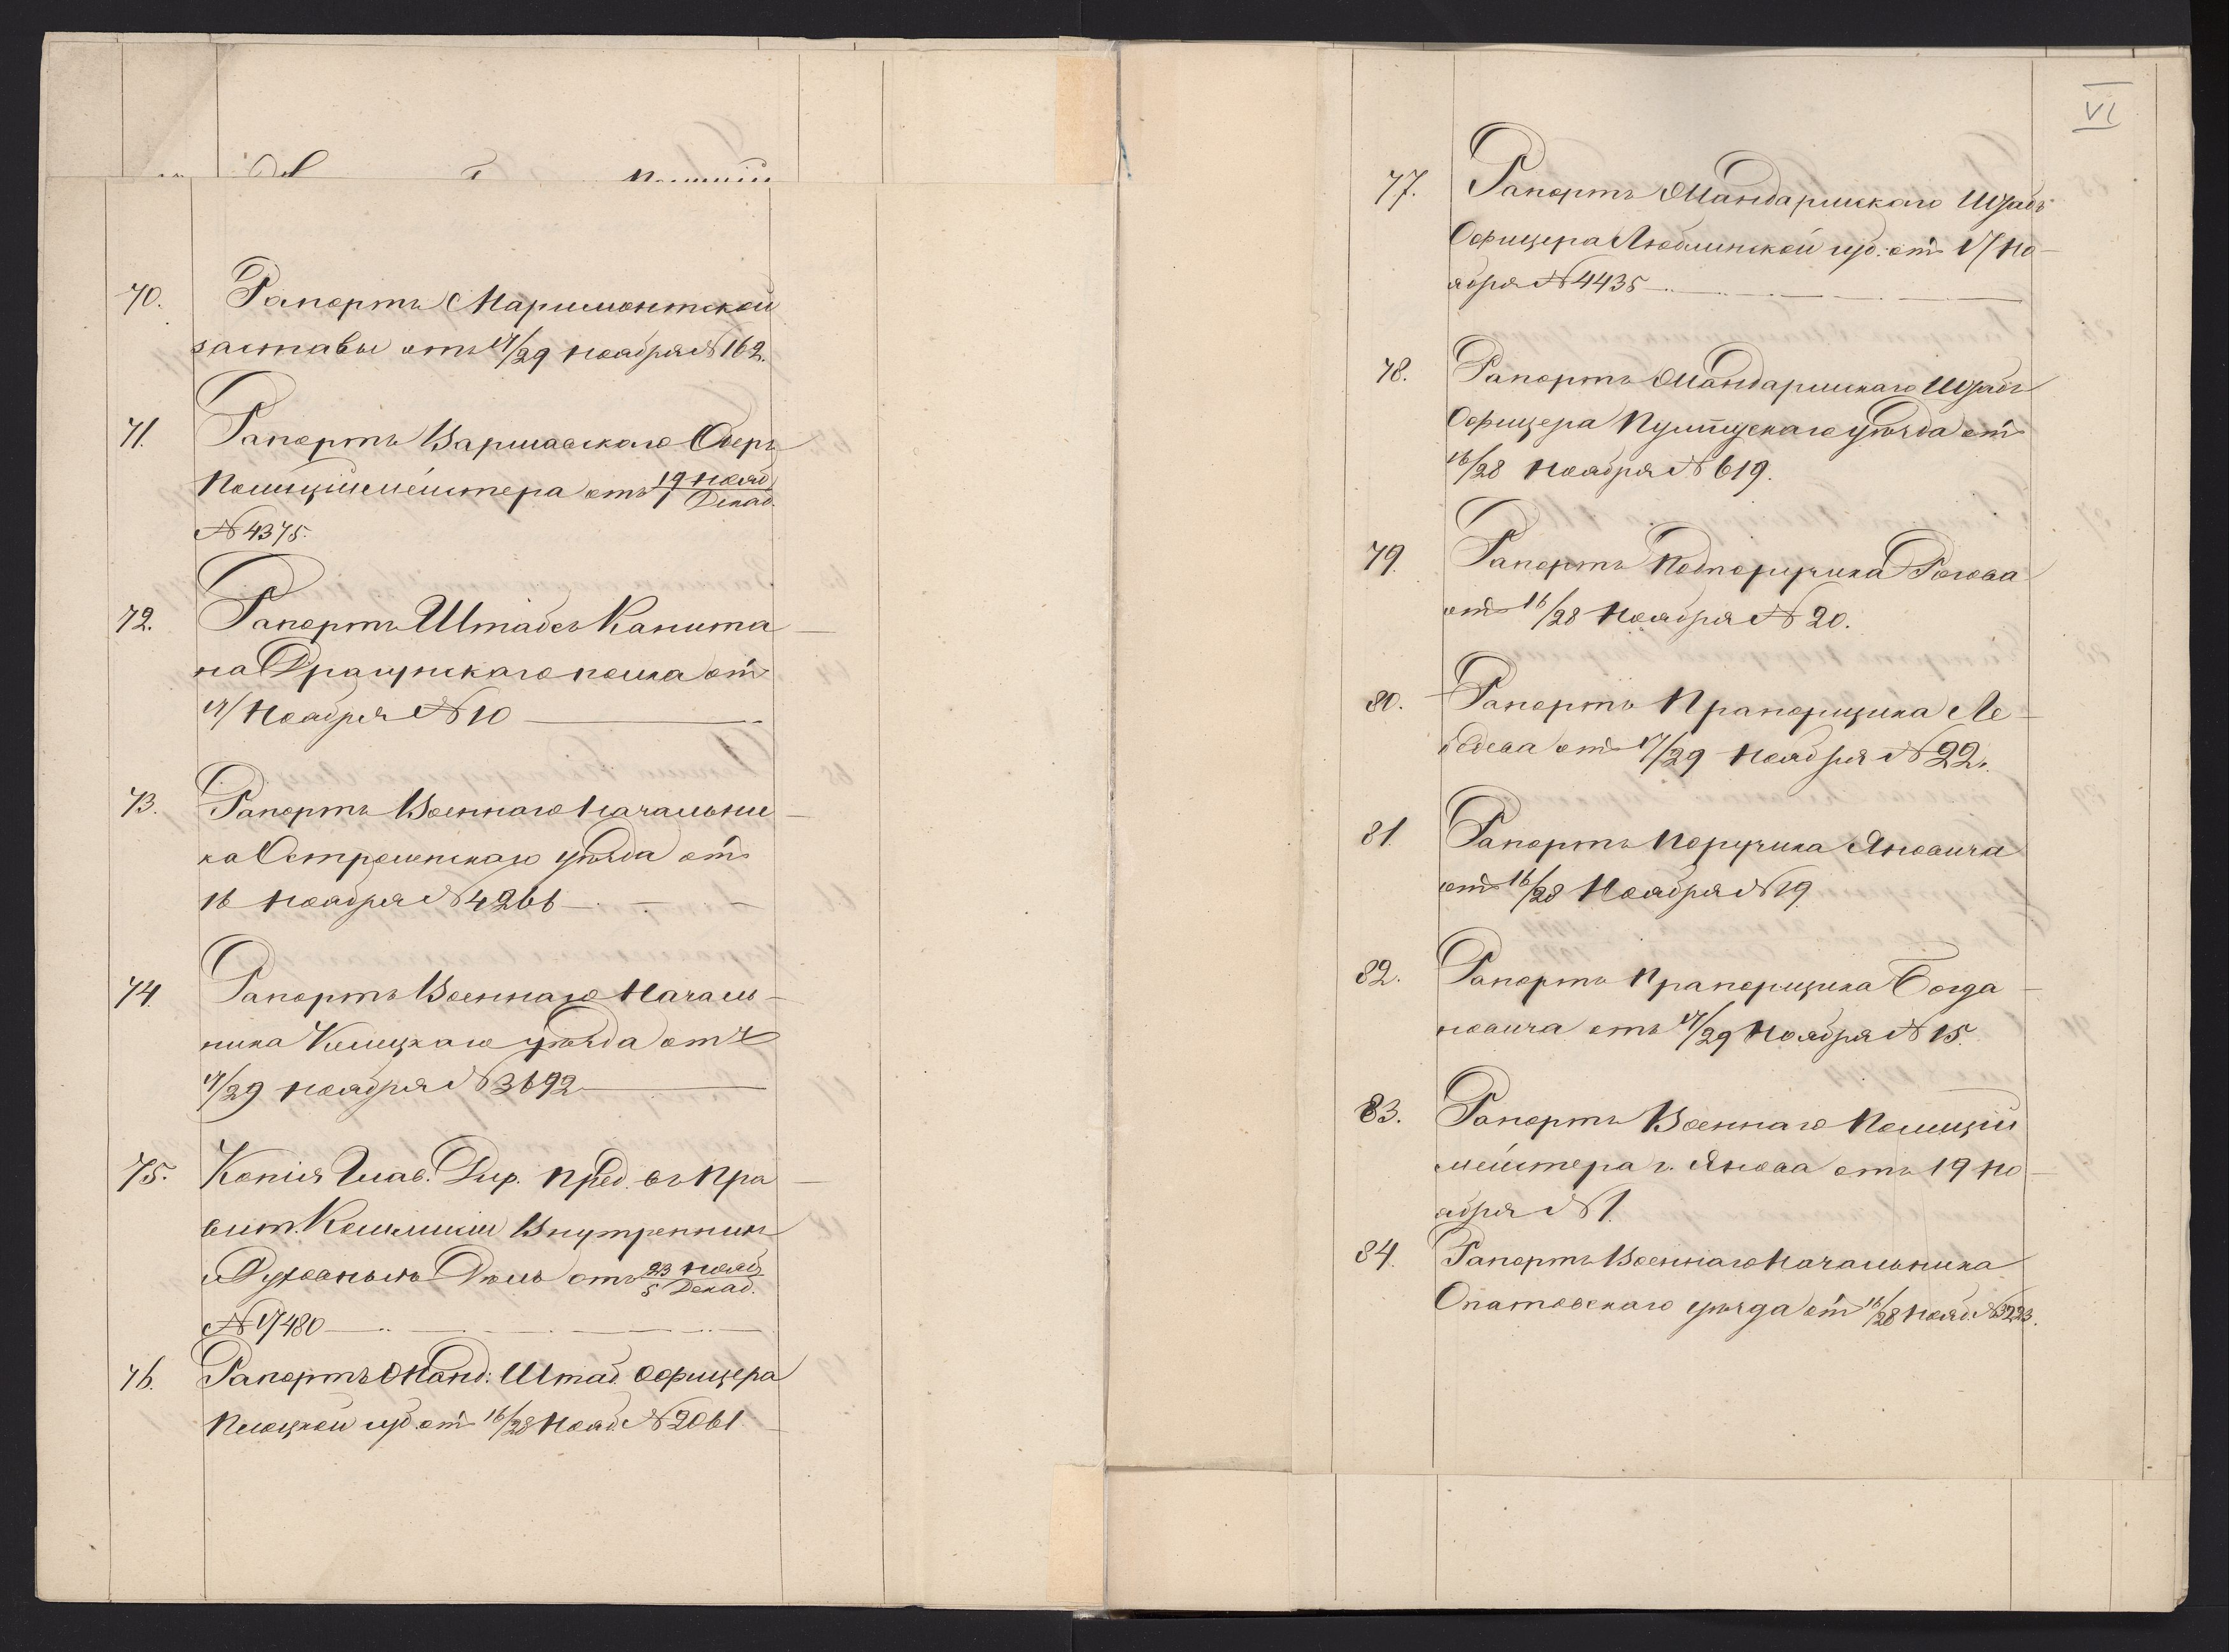 70. Рапортъ Маримонтской
заставы отъ 17/29 Ноября № 162.
71. Рапортъ Варшавскаго Оберъ
Полиціймейстера отъ 19 Нояб/1 Декаб.
№ 4375.
72. Рапортъ Штабсъ Капита
на Драгунскаго полка отъ
17/ Ноября № 10
73. Рапортъ Военнаго Начальни
ка Остроленскаго уѣзда отъ
16 Ноября № 4266
74. Рапортъ Военнаго Началь-
ника Келецкаго уѣзда отъ
17/29 Ноября № 3692
75. Копія Глав. Дир. Пред. въ Пра
вит. Коммисіи Внутреннихъ
и Духовныхъ Дѣлъ отъ 23 Нояб/5 Декаб.
№ 17480
76. Рапортъ Жанд: Штаб. Офицера
Плоцкой губ. отъ 16/28 Нояб. № 2061
VI
77. Рапортъ Жандармскаго Штабъ
Офицера Люблинской губ. отъ 17 Но-
ября № 4435
78. Рапортъ Жандармскаго Штабъ
Офицера Пултускаго уѣзда отъ
16/28 Ноября № 619.
79. Рапортъ Подпоручика Рогова
отъ 16/28 Ноября № 20.
80. Рапортъ Прапорщика Ле-
бедева отъ 17/29 Ноября № 22.
81. Рапортъ Поручика Яновича
отъ 16/28 Ноября № 19
82. Рапортъ Прапорщика Богда-
новича отъ 17/29 Ноября № 15.
83. Рапортъ Военнаго Полиций
мейстера г. Янова отъ 19 Но-
ября № 1.
84. Рапортъ Военнаго Начальника
Опатовскаго уѣзда отъ 16/28 Нояб. № 3223.